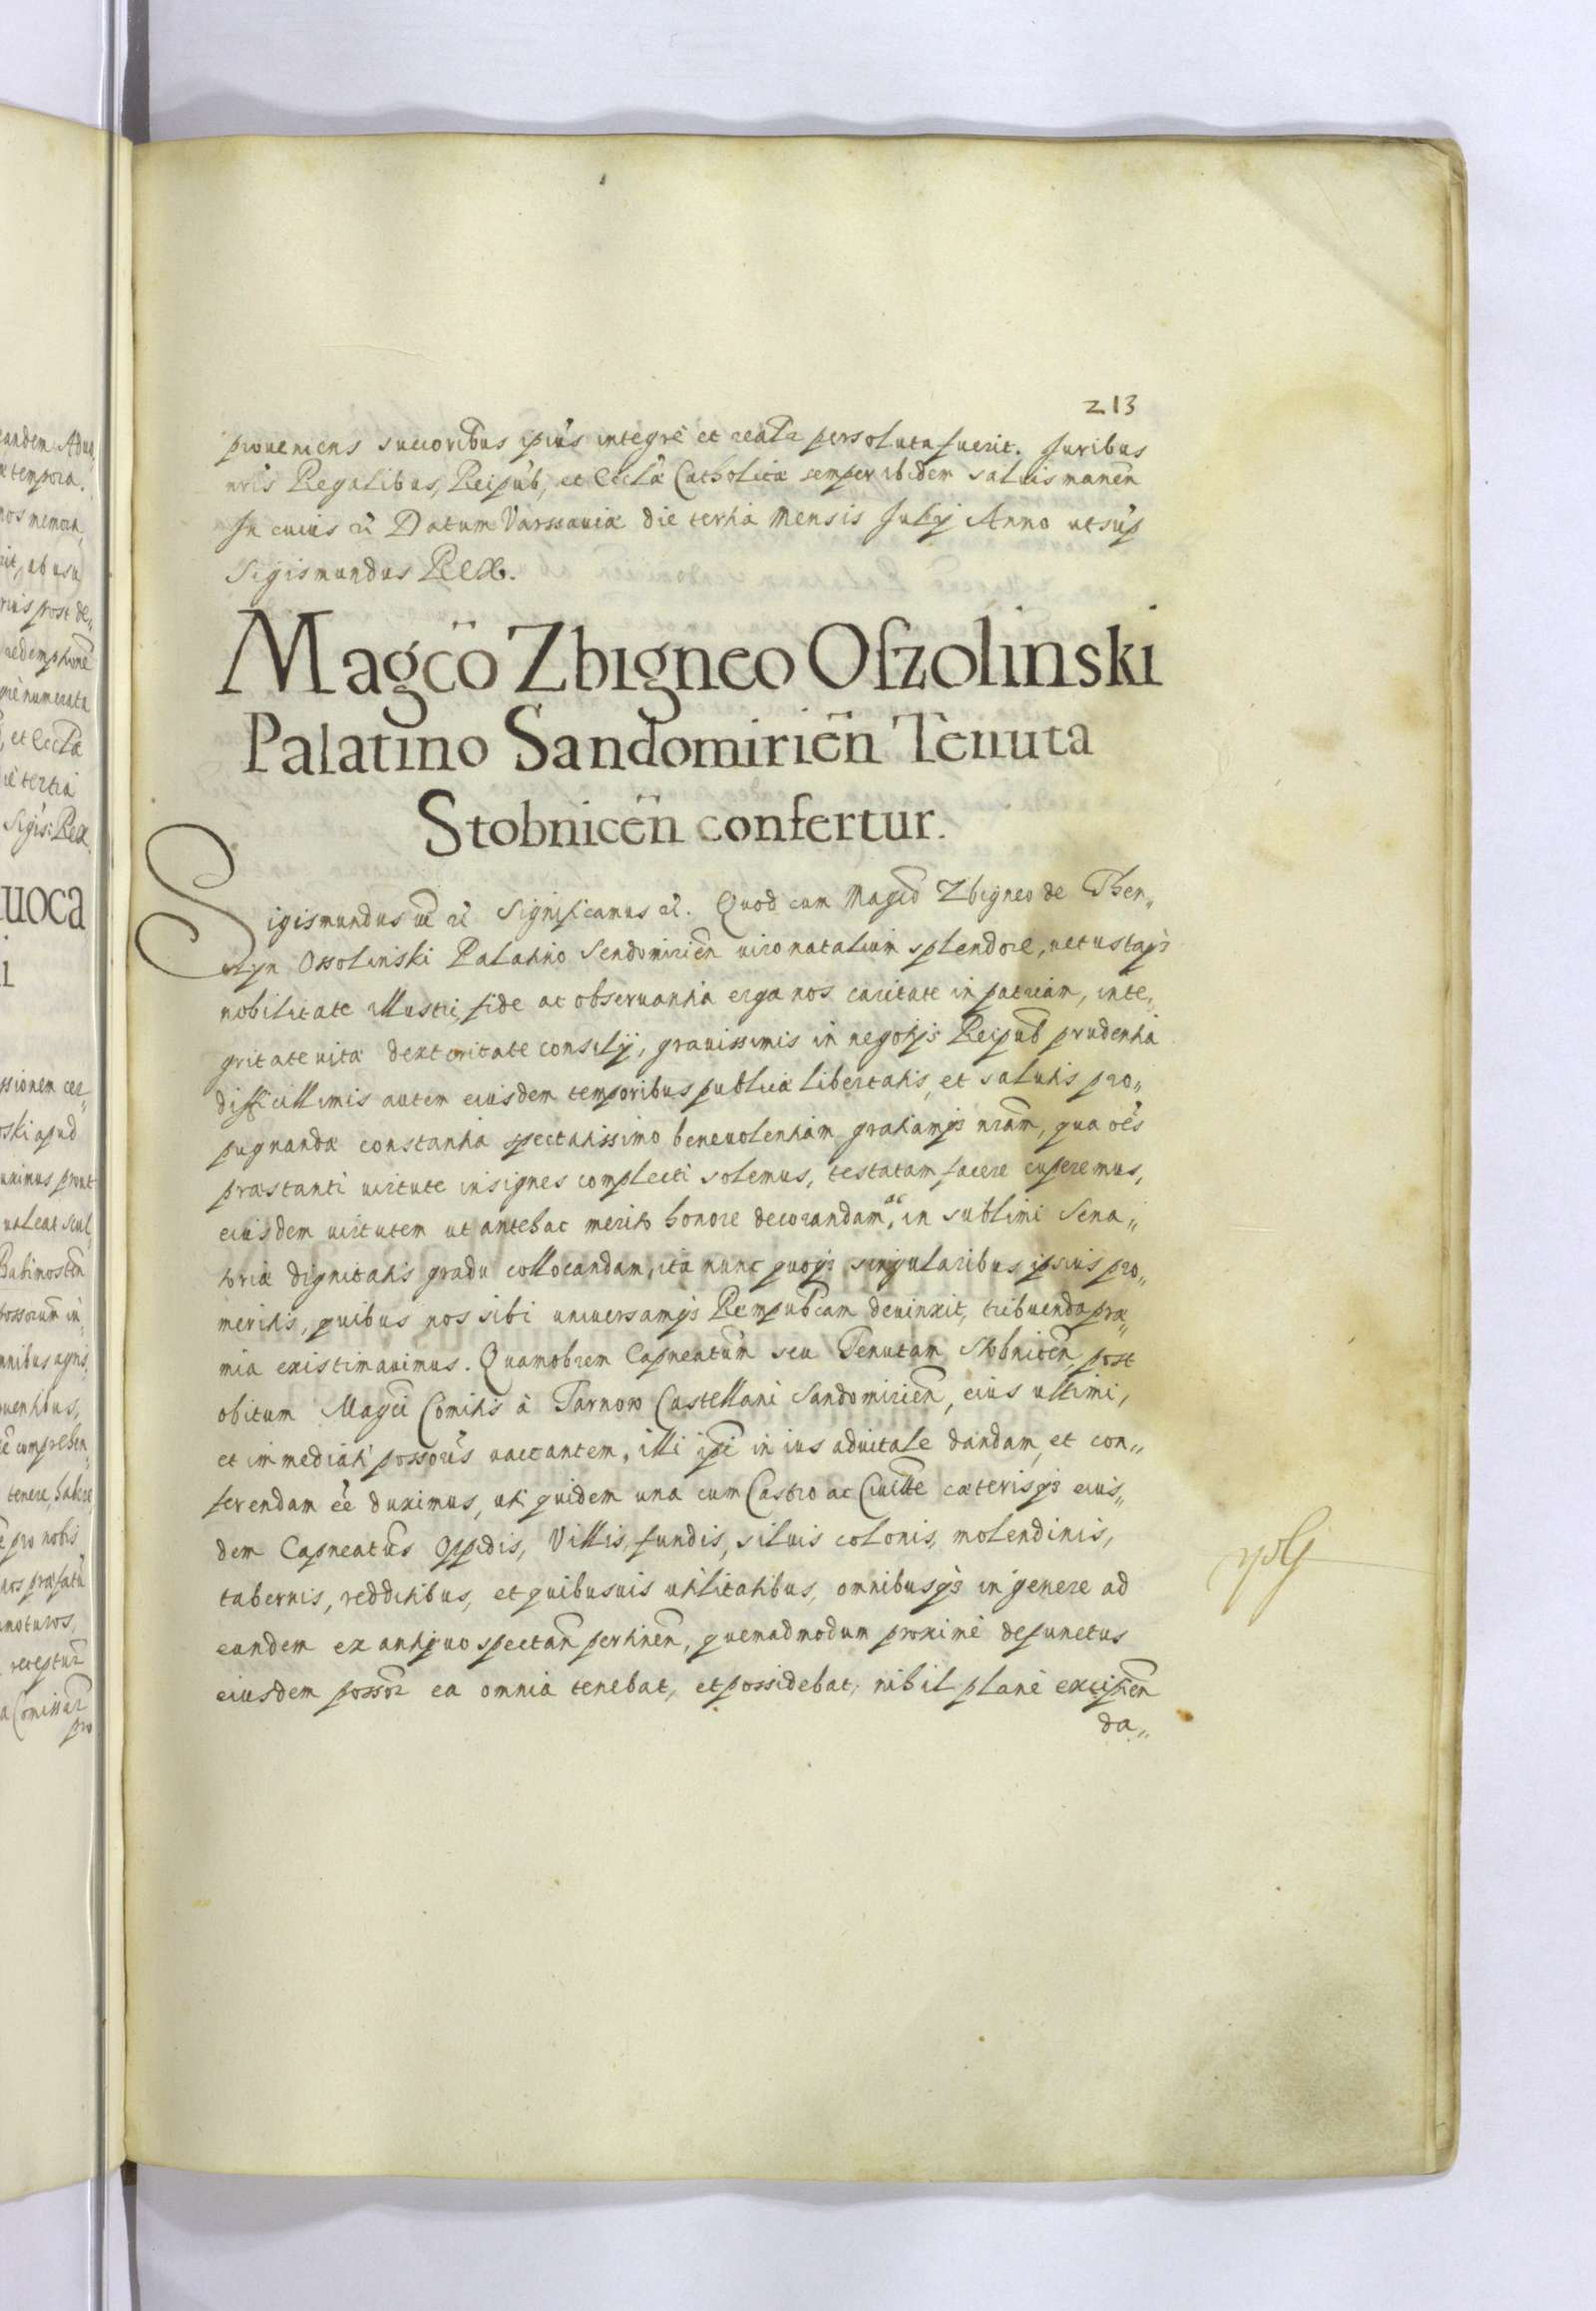 213
proueniens succoribus ipius integrè et realr persoluta fuerit. Juribus
nris Regalibus, Reipub, et Eccla Catholicæ semper ibidem saluis manen
In cuius rei Datum Varssauiæ die tertia Mensis Julij Anno ut sup
Sigismundus Rex.
Magco Zbigneo Ofzolinski
Palatino Sandomirien Tenuta
Stobnicen confertur.
Sigismundus Significamus Quod cum Magco Zbigneo de Then„
czyn Ossolinski Palatino Sendomirien uiro natalium splendore, uetustaqs
nobilitate illustri, fide ac obseruantia erga nos caritate in patriam, inte„
gritate uitæ dexteritate consilij, grauissimis in negotijs Reipub prudentia
difficillimis autem eiusdem temporibus publicæ libertatis, et salutis pro„
pugnandæ constantia spectatissimo beneuolentiam gratiamqs nram, qua oes
præstanti uirtute insignes complecti solemus, testatam facere cuperemus,
eiusdem uirtutem ut antehac merito honore decorandam, ac in sublimi Sena„
toriæ dignitatis gradu collocandam, ita nunc quoqs singularibus ipsius pro„
meritis, quibus nos sibi uniuersamqs Rempubcam deuinxit, tribuenda præ„
mia existimauimus. Quamobrem Capneatum seu Tenutam Stobnicen, post
obitum Magci Comitis à Tarnow Castellani Sandomirien, eius ultimi,
et immediati possoris uacantem, illi ipi in ius aduitale dandam, et con„
ferendam ee duximus, uti quidem una cum Castro ac Ciuitte cæterisqs eius„
dem Capneatus Oppidis, Villis, fundis, siluis colonis, molendinis,
tabernis, redditibus, et quibusuis utilitatibus, omnibusqs in genere ad
eundem ex antiquo spectan pertinen, quemadmodum proximè defunctus
eiusdem possor ea omnia tenebat, et possidebat, nihil planè excipien
da„